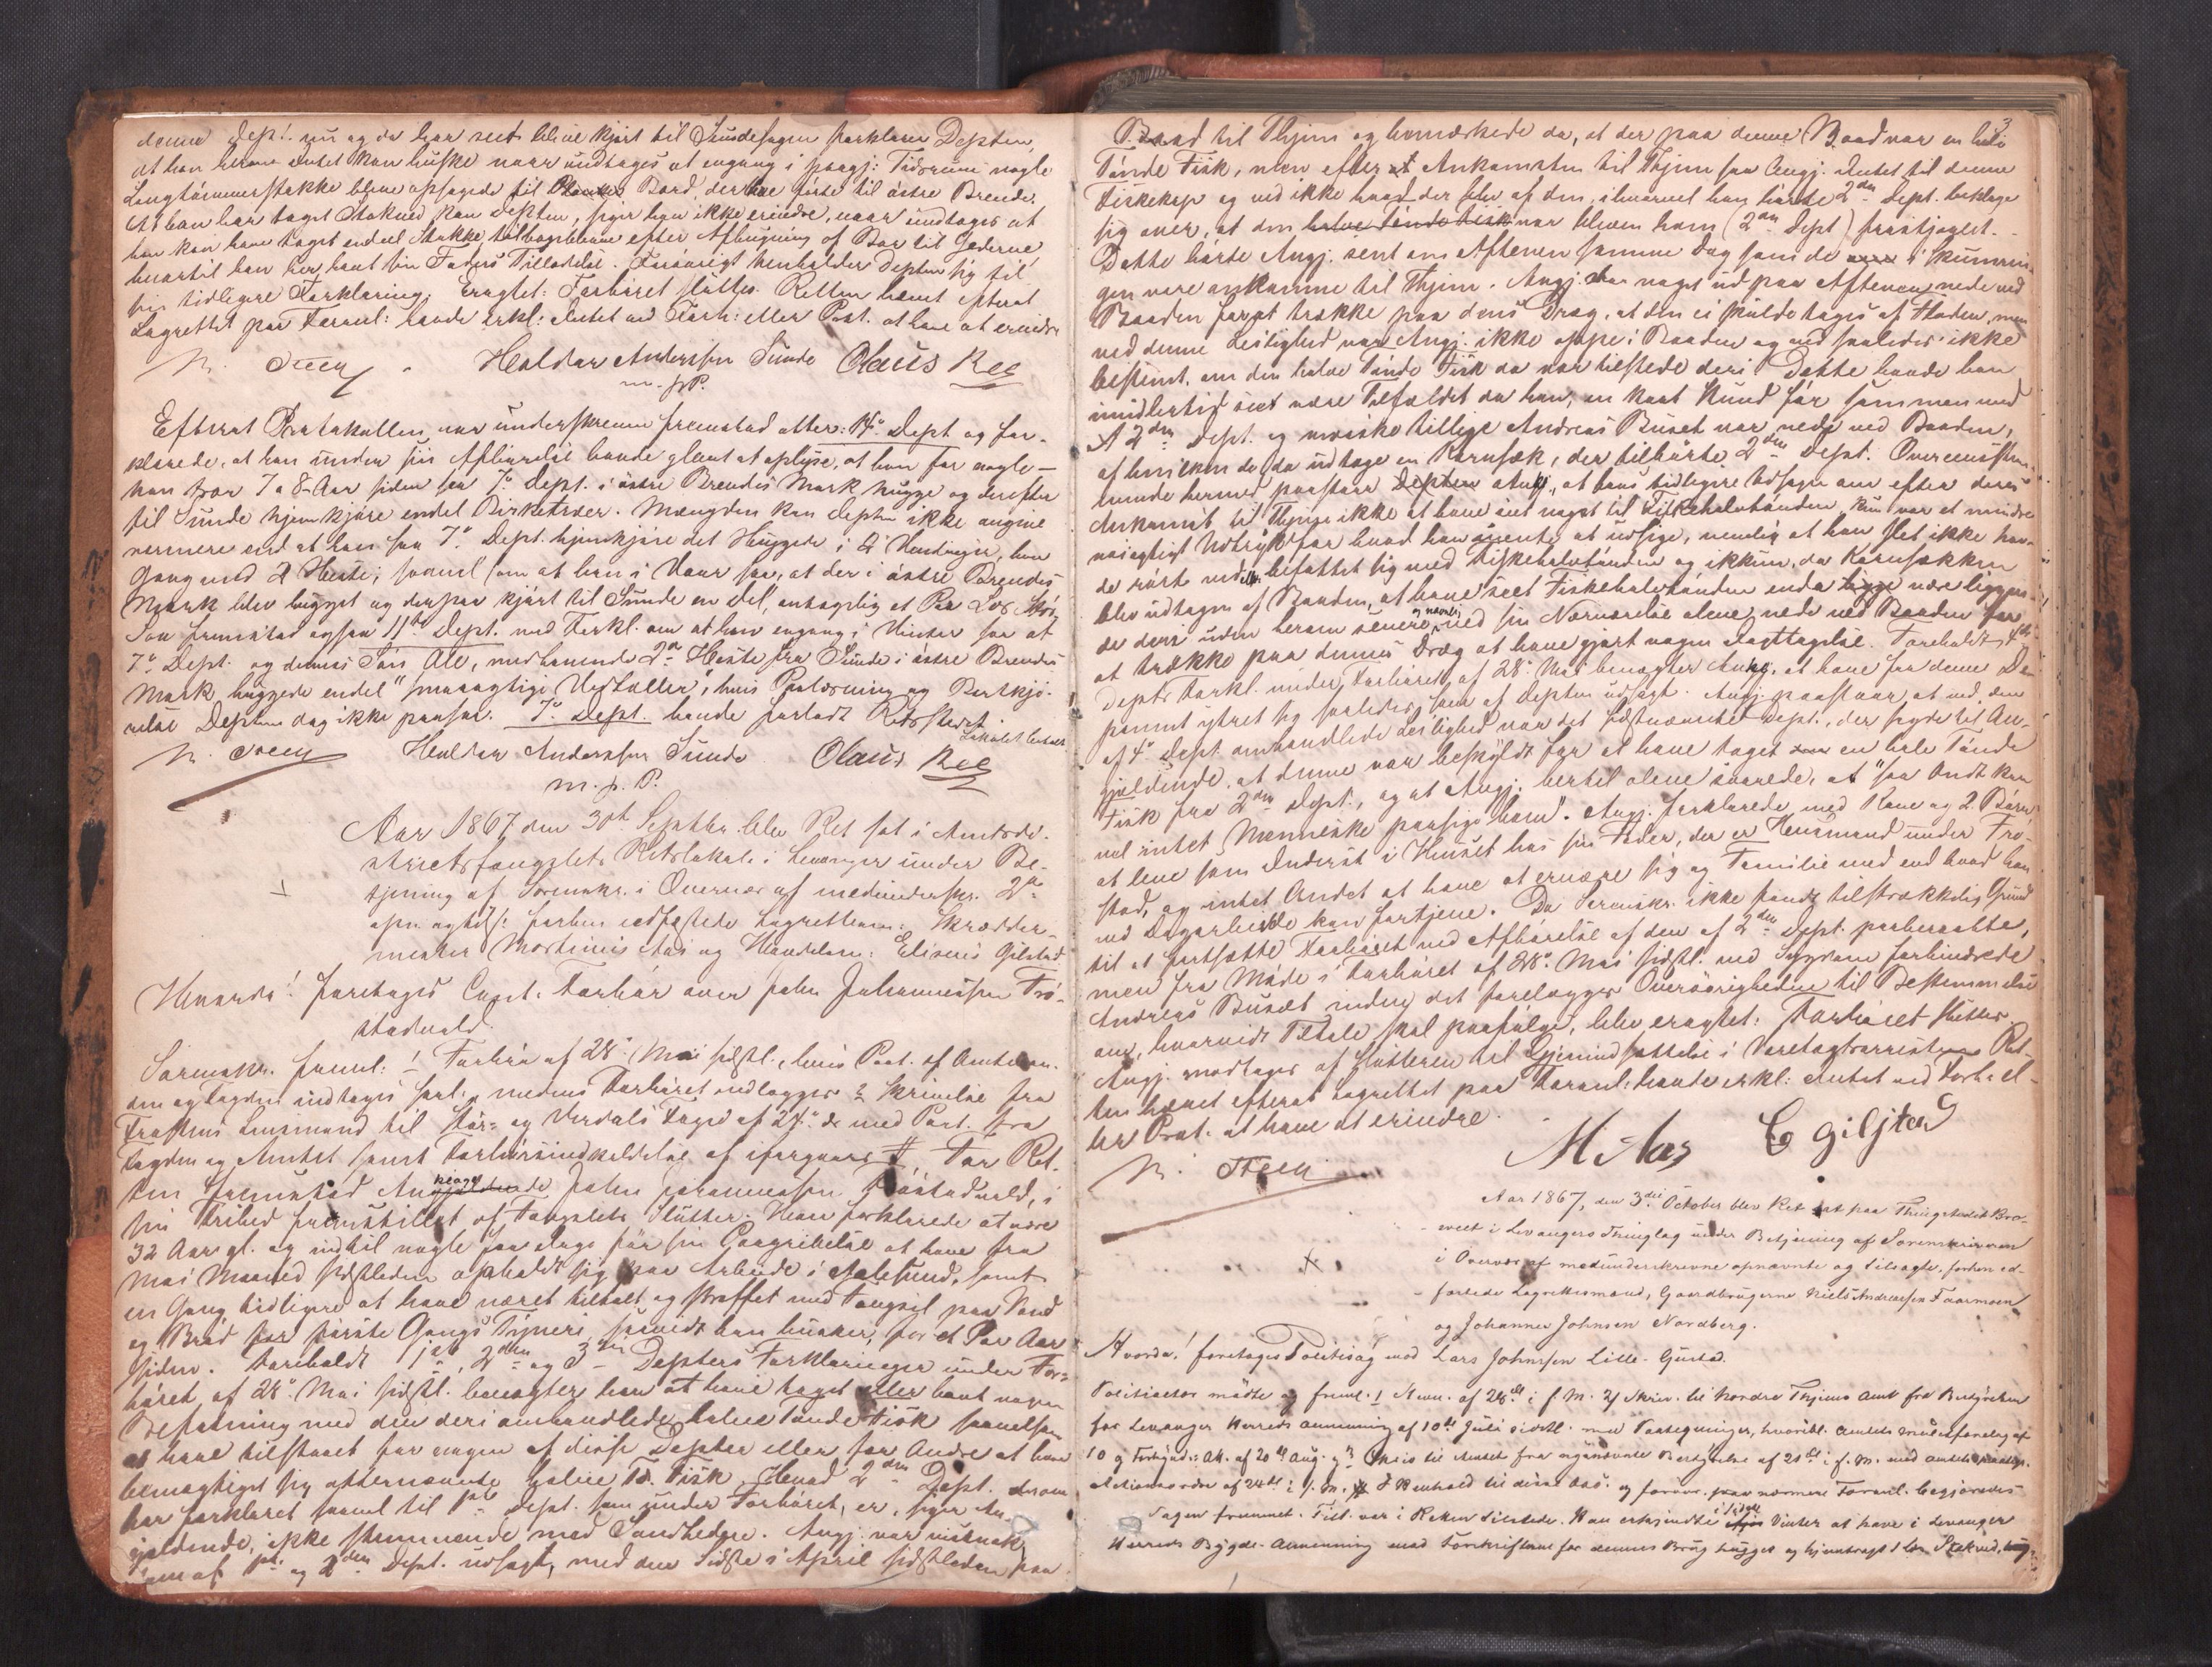 denne Dept. nu og da har seet blive kjørt til Sundesagen forklarer Depten,
at han herom Intet kan huske naar undtages at engang i paagj: Tidsrum nogle
Langtømmerstokke bleve opsagede til Bord, der hørte til østre Brende.
At han har taget Stokved kan Depten, siger hegn ikke erindre, naar undtages at
han kan have taget endeel Stokke tilbageblevne efter Afhugning af Bar til Gederne
hvortil han her havt sin Faders Tilladelse. Forøvrigt henholder Depten sig til
sin tidligere Forklaring. Eragtet: Forhøret sluttes. Retten hævet efterat
Lagrettet paa Foranl: havde erkl: Intet ved Forh: eller Prot. at have at erindre
N. Steen Haldor Andersen Sunde Olaus Ree
m. f. P.
Efterat Protokollen var underskreven fremstod atter: 14de Dept. og for-
klarede, at han under sin Afhørelse havde glemt at oplyse, at han for nogle –
han tror 7 a 8 Aar siden saa 7de Dept. i østre Brendes Mark hugge og derefter
til Sunde hjemkjøre endel Birketræer. Mængden kan Depten ikke angive
nærmere end at han saa 7de Dept. hjemkjøre det Huggede i 2 Vendinger, hver
Gang med 2 Heste; saavel som at han i Vaar saa, at der i østre Brendes
Mark blev hugget og derpaa kjørt til Sunde en Del, antagelig et Par Læs
Saa fremstod ogsaa 11te Dept. med Forkl. om at han engang i Vinter saa at
7de Dept. og dennes Søn Ole, medhavende 2de Heste fra Sunde i østre Brendes
Mark huggede endel "smaagtige Vedtæller", hvis og Bortkjø-
relse Depten dog ikke paasaa. 7de Dept. havde forladt Retsstedet.
Lokalet
N. Steen Haldor Andersen Sunde Olaus Ree
m. f. P.
Aar 1867 den 30te Septbr. blev Ret sat i Amtsdi-
strictsfængslets Retslokale i Levanger under Be-
tjening af Sorenskr. i Overvær af medunderskr. 2de
opn. og tils: forhen edfæstede Lagrettem: Skrædder-
mester Mortinus Aas og Handelsm: Eliseus Gilstad
Hvorda! foretoges Cont. Forhør over John Johannessen Frø-
stadvald.
Sorenskr. freml: 1 Forhør af 28de Mai sidstl., hvis Paat. af Amtm-
en og Fogden indtages saal: medens Forhøret vedlægges 2 Skrivelse fra
Frostens Lensmand til Stør= og Værdals Foged af 24de ds med Paat. fra
Fogden og Amtet samt Forhørsindkaldelse af igaar. For Ret-
ten fremstod Angjeldende John Johannessen Frøstadvald, i
sin Frihed fremstillet af Fængslets Slutter. Han forklarede at være
32 Aar gl. og indtil nogle faa Dage før sin Paagribelse at have fra
Mai Maaned sidstleden opholdt sig paa Arbeide i Aalesund, samt
en Gang tidligere at have været tiltalt og straffet med Fængsel paa Vand
og Brød for første Gangs Tyveri saavidt han husker, for et Par Aar
siden. Foreholdt 1ste, 2den og 3die Depters Forklaringer under For-
høret af 28de Mai sidstl. benægter han at have taget eller havt nogen
Befatning med den deri omhandlede halve Tønde Fisk saavelsom
at have tilstaaet for nogen af disse Depter eller for Andre at have
bemægtiget sig ommeldte halve Td. Fisk. Hvad 2den Dept. derom
har forklaret saavel til 1ste Dept. som under Forhøret, er, siger An-
gjeldende, ikke stemmende med Sandheden. Angj. var vistnok
som af 1ste og 2den Dept. udsagt, med den Sidste i April sidstleden paa
3
Baad til Thjem og bemærkede da, at der paa denne Baad var en halv
Tønde Fisk, men efter Ankomsten til Thjem saa Angj. Intet til denne
Fiskekag og ved ikke hvad der blev af den, ihvorvel han hørte 2den Dept. beklage
sig over, at den halve Tønde Fisk var bleven ham (2den Dept) frastjaalet.
Dette hørte Angj. sent om Aftenen samme Dag som de i Skumrin-
gen vare ankomne til Thjem. Angj. var noget ud paa Aftenen nede ved
Baaden for at trække paa dens Dræg, at den ei skulde tages af Floden, men
ved denne Leilighed var Angj. ikke oppe i Baaden og ved saaledes ikke
bestemt, om den halve Tønde Fisk da var tilstede deri. Dette havde han
imidlertid seet være Tilfældet da han, en kort Stund før sammen med
2den Dept. og maaske tillige Andreas Buset var nede ved Baaden,
af hvilken de da udtoge en Kornsæk, der tilhørte 2den Dept. Overensstem-
mende hermed paastaar Depten Angj., at hans tidligere Udsagn om efter deres
Ankomst til Thjem ikke at have seet noget til Fiskehalvtønden kun var et mindre
nøiagtigt Udtryk for hvad han mente at udsige, nemlig at han slet ikke hav-
de rørt ved eller befattet sig med Fiskehalvtønden og ikkun, da Kornsækken
blev udtagen af Baaden, at have seet Fiskehalvtønden endda ligge være liggen-
de deri uden herom senere og navnlig ved sin Nærværelse alene nede ved Baaden for
at trække paa dennes Dræg at have gjort nogen Iagttagelse. Foreholdt 4de
Depts Forkl. under Forhøret af 28de Mai benægter Angj., at have fra denne De-
ponent ytret sig saaledes, som af Depten udsagt. Angj. paastaar, at ved den
af 4de Dept. omhandlede Leilighed var det sidstnævnte Dept., der sagde til An-
gjeldende, at denne var beskyldt for at have taget en halv Tønde
Fisk fra 2den Dept., og at Angj. hertil alene svarede, at "saa Ondt kan
vel intet Menneske paasige ham". Angj. forklarede med Kone og 2 Børn
at leve som Inderst i Huset hos sin Fader, der er Huusmand under Frø-
stad, og intet Andet at have at ernære sig og Familie med end hvad han
ved Dagarbeide kan fortjene. Da Sorenskr. ikke fandt tilstrækkelig Grund
til at fortsætte Forhøret ved Afhørelse af den af 2den Dept. paaberaabte,
men fra Møde i Forhøret af 28de Mai sidstl. ved Sygdom forhindrede
Andreas Buset inden det forelægges Overøvrigheden til Bestemmelse
om, hvorvidt Tiltale skal paafølge, blev eragtet: Forhøret sluttes.
Angj. modtages af Slutteren til Gjenindsættelse i Varetægtsarresten. Ret-
ten hævet efterat Lagrettet paa Foranl: havde erkl: Intet ved Forh: el-
ler Prot. at have at erindre.
N. Steen M Aas E Giljstad
Aar 1867, den 3die October blev Ret sat paa Thingstedet Bra-
vect i Levangers Thinglag under Betjening af Sorenskriveren
i Overvær af medunderskrevne opnævnte og tilsagte, forhen ed-
fæstede Lagrettesmænd, Gaardbrugerne Niels Andreassen Faarmoen
og Johannes Johnsen Nordberg.
Hvorda! foretoges Politisag mod Lars Johnssen Lille-Gustad.
Politiactor mødte og freml. 1 Stevn. af 28de i f. M. 2 Skriv. til Nordre Thjems Amt fra Bestyrelsen
for Levanger Herreds Alminding af 10de Juli sidstl. med Paategninger, hvoribl. Amtets Mulctforelæg af
10 og Forhgnd.: Ak. af 20de Aug. 3 Skriv til Amtet fra nysnævnte Bestyrelse af 21de i f. M. med Amtets paategn.
Actionsordre af 24de i f. M. I Henhold til disse Doc. og forøvr. paa nærmere Foranl. begjæredes
Sagen fremmet. Tilt. var i Retten tilstede. Han erkjendte i sidste Vinter at have i Levanger
Herreds Bygde-Alminding mod Forskrifterne for dennes Brug hugget og hjembragt 1 Læs Stokved,